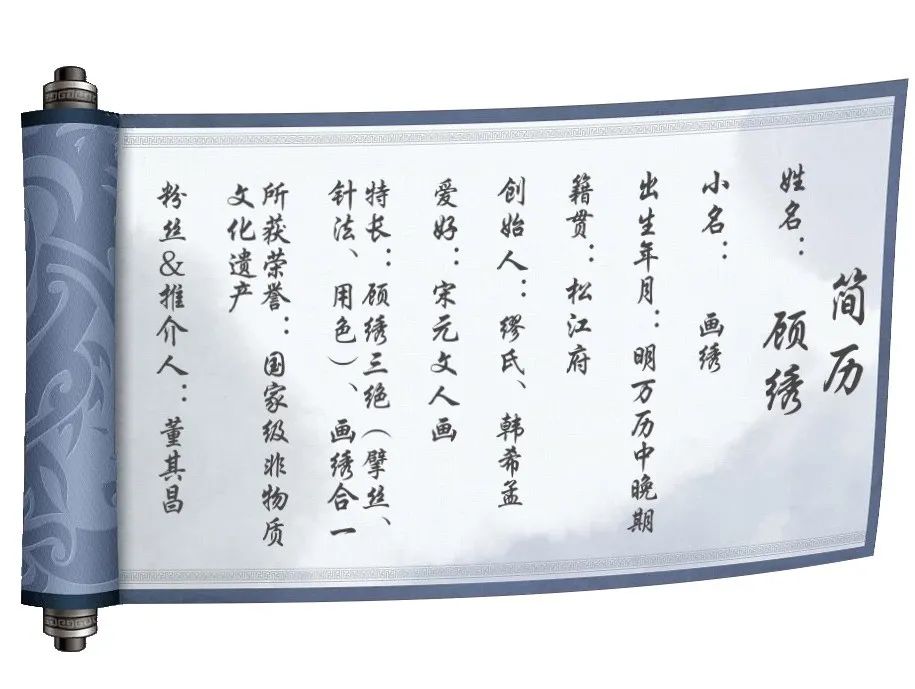 简历
姓名：顾绣
小名：画绣
出生年月：明万历中晚期
籍贯：松江府
创始人：缪氏、韩希孟
爱好：宋元文人画
特长：顾绣三绝（擘丝、
针法、用色）、画绣合一
所获荣誉：国家级非物质
文化遗产
粉丝&推介人：董其昌